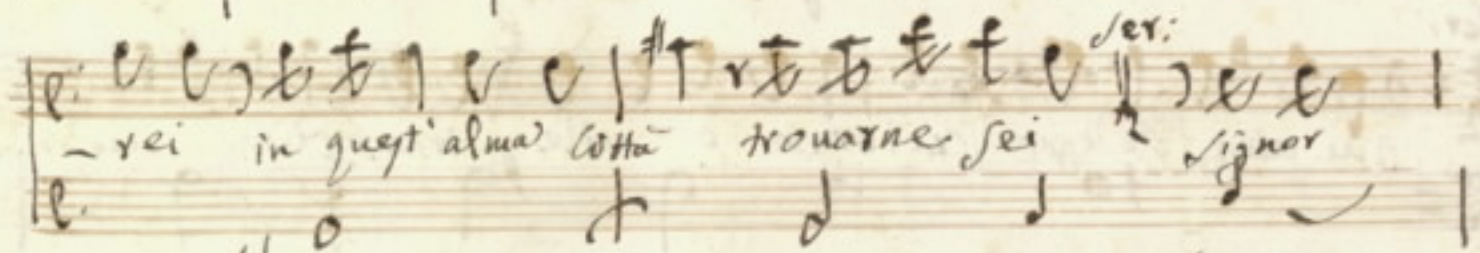 Ser:
- rei in quest'alma Città trouarne sei Signor